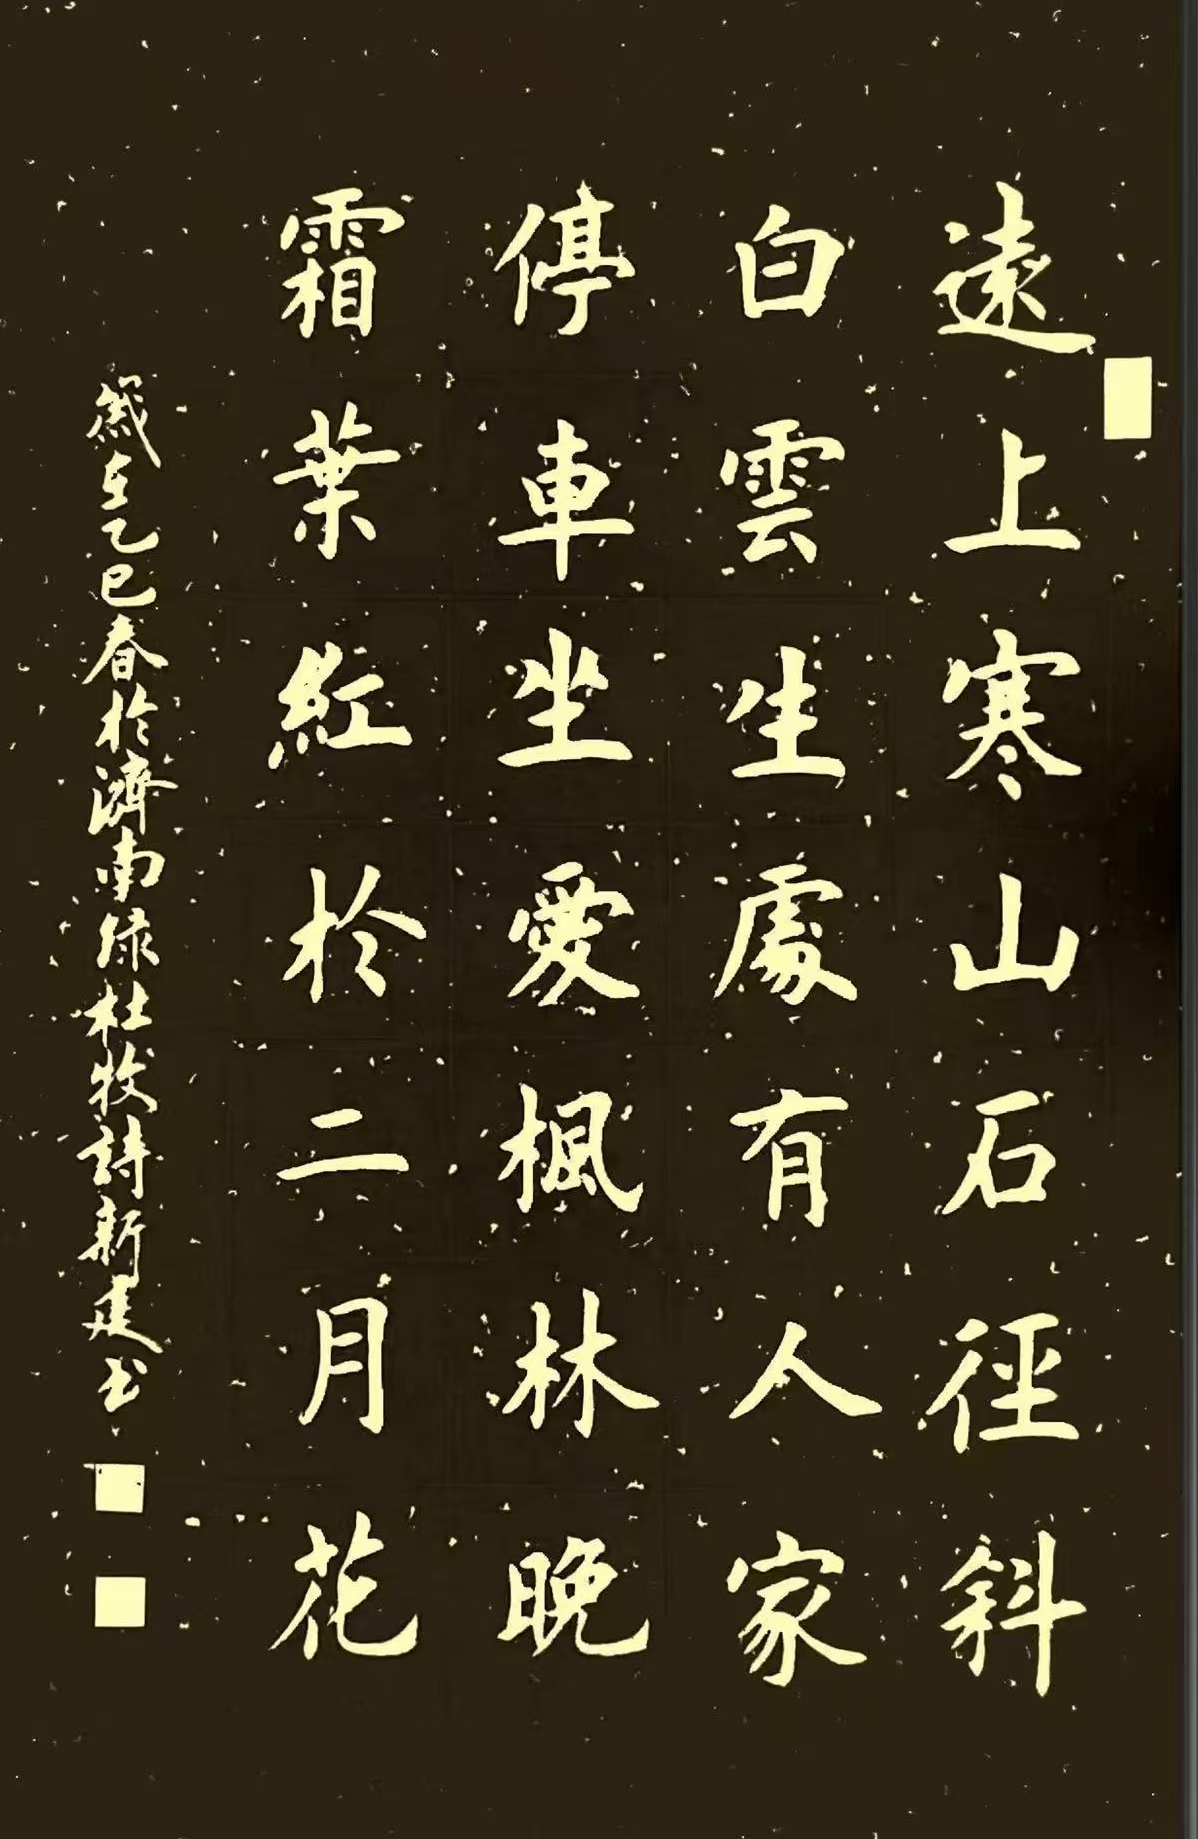 遠上寒山石徑斜
白雲生處有人家
停車坐愛楓林晚
霜葉紅於二月花
歲在乙巳春於濟南録杜牧詩新建书